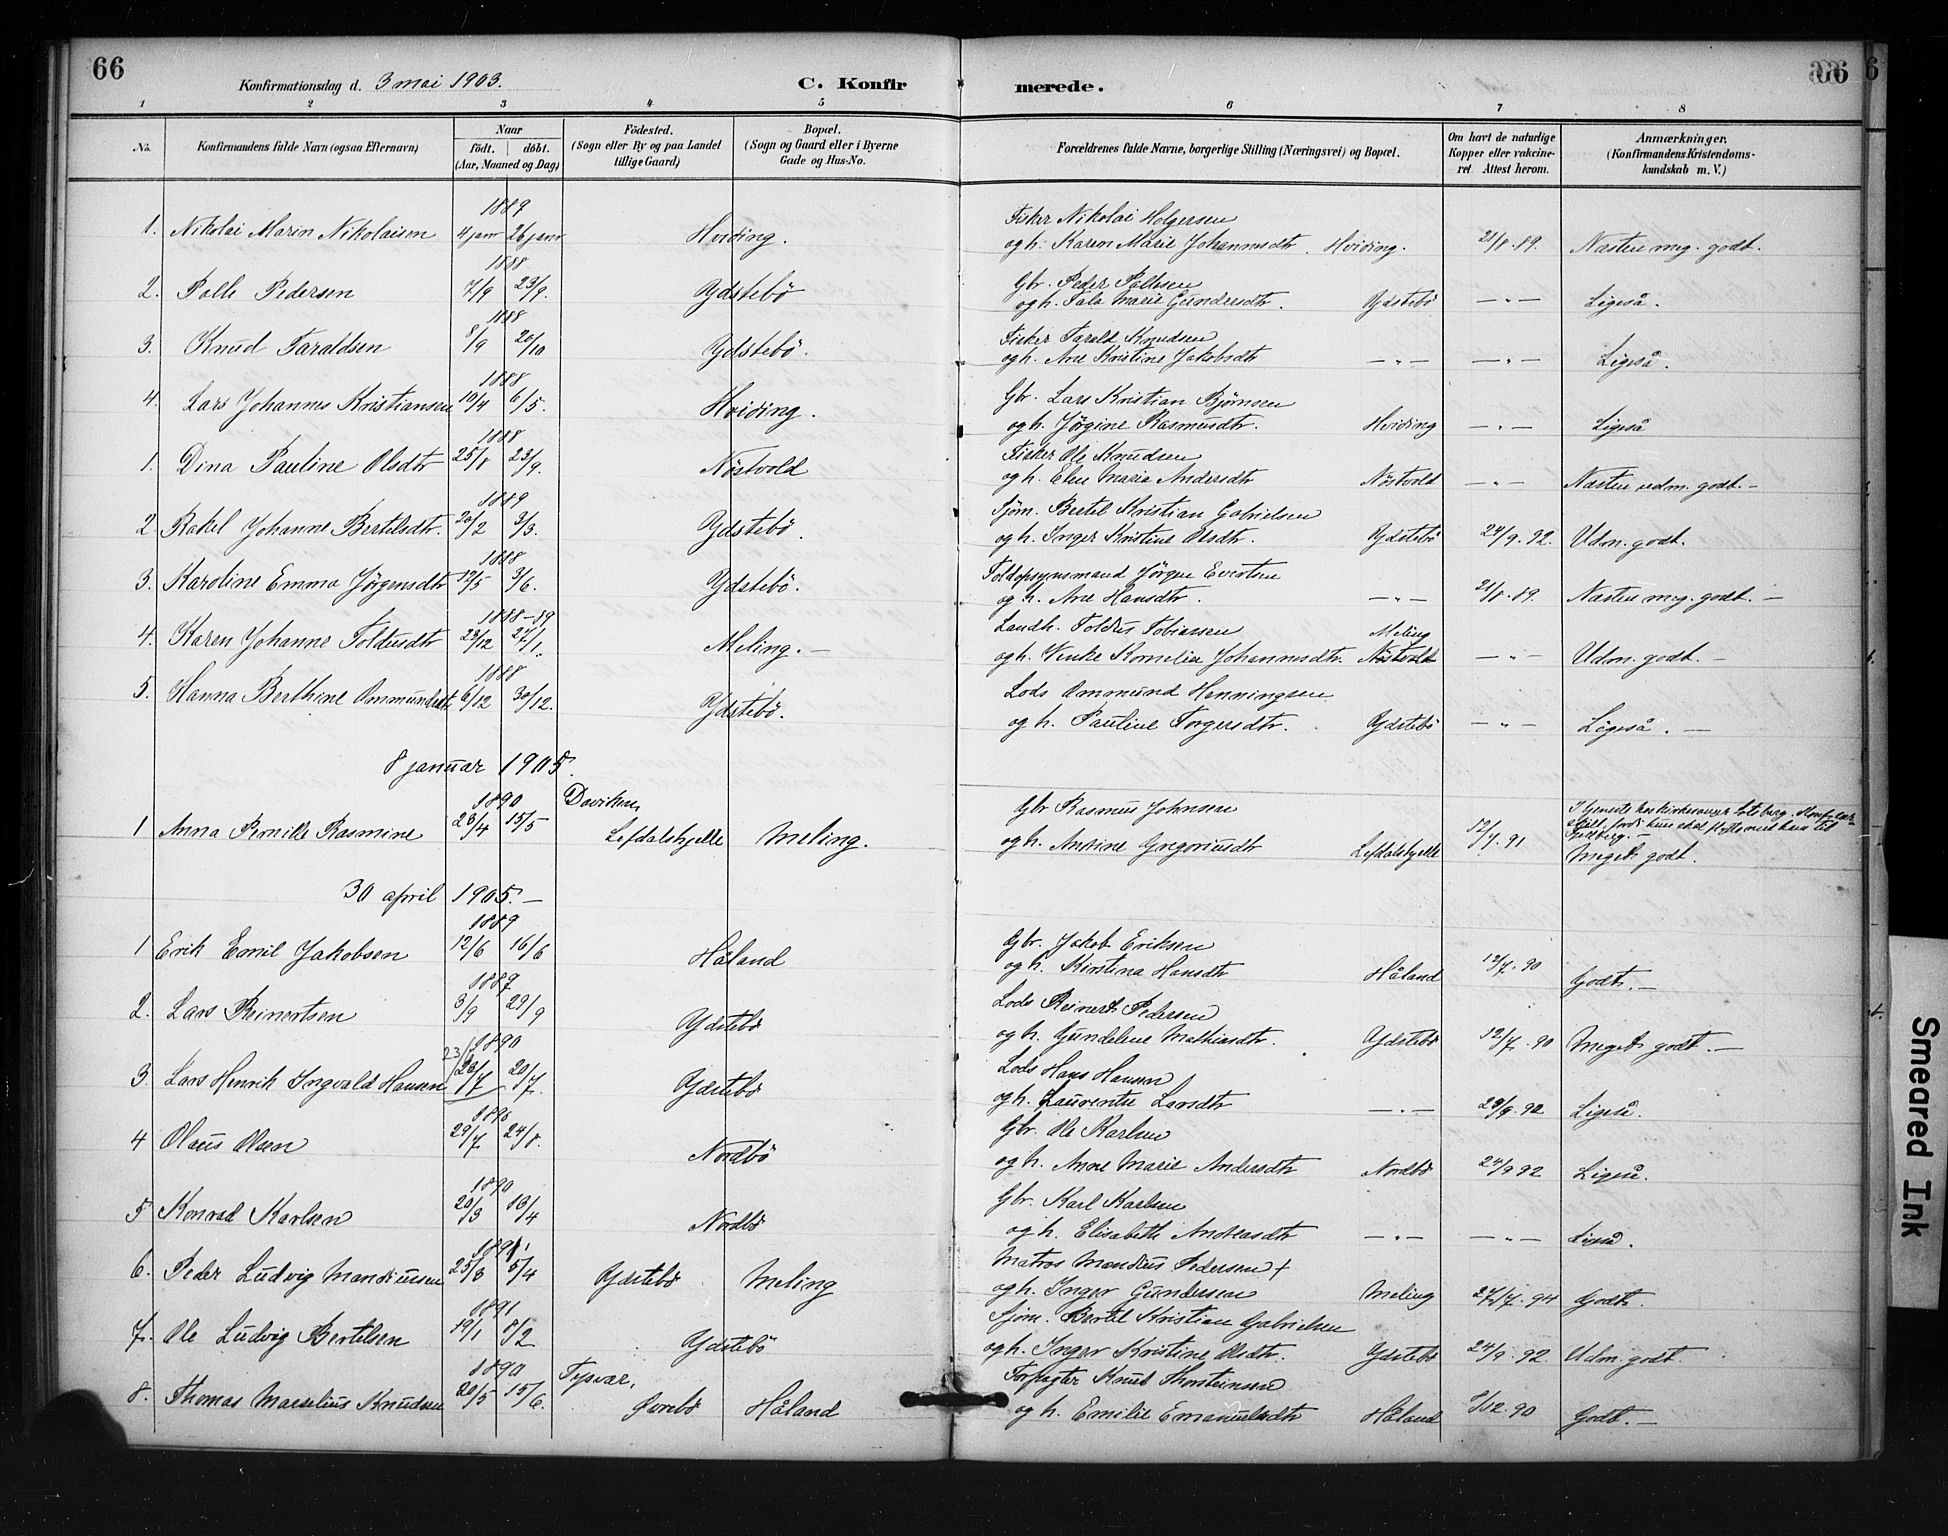 66
Konfirmationsdag d. 3 mai 1903.
C. Konfir
merede.
66
6
1 2 3 4 5 6 7 8
No.
Konfirmandens fulde Navn (ogsaa Efternavn)
Naar
födt. döbt.
(Aar, Maaned og Dag)
Födested.
(Sogn eller By og paa Landet
tillige Gaard)
Bopæl.
(Sogn og Gaard eller i Byerne
Gade og Hus-No.
Forældrenes fulde Navne, borgerlige Stilling (Næringsvei) og Bopæl.
Om havt de naturlige
Kopper eller vakcine-
ret. Attest herom.
Anmærkninger,
(Konfirmandens Kristendoms-
kundskab m. V.)
1889
Fisker Nikolai Holgersen
1. Nikolai Marin Nikolaisen 4 janr 26 janr Hviding. og h. Karen Marie Johannesdtr. Hviding. 21/8.89. Næsten meg. godt.
1888
Gbr. Peder Pallesen
2. Palle Pedersen 7/9 23/9. Ydstebö og h. Tala Marie Gundersdtr. Ydstebö — " — Ligeså.
1888
Fisker Tarald Knudsen
3. Knud Taraldsen 8/9 20/10 Ydstebö. og h. Ane Kristine Jakobsdtr — " — — " — Ligeså.
1888
Gbr. Lars Kristian Björnsen
4. Lars Johannes Kristiansen 10/4 6/5. Hviding. og h. Jörgine Rasmusdtr. Hviding — " — Ligeså
1888
Fisker Ole Knudsen
1. Dina Pauline Olsdtr 25/8 23/9. Nöstvold og h. Elen Maria Andersdtr Nöstvold — " — Næsten udm. godt. —
1889
Sjöm. Bertel Kristian Gabrielsen
2. Rakel Johanne Bertelsdtr. 20/2 3/3. Ydstebö. og h. Inger Kristine Olsdtr. Ydstebö 24/9.92. Udm. godt.
1888
Toldopsynsmand Jörgen Evertsen
3. Karoline Emma Jörgensdtr 12/5 3/6. Ydstebö. og h. Ane Hansdtr. — " — 21/8.89. Næsten meg. godt. —
1888-89
Landh. Toldus Tobiassen Meling
4. Karen Johanne Toldusdtr 23/12 27/1. Meling. — og h. Vinke Kornelia Johannesdtr. Nöstvold — " — Udm. godt. —
1888
Lods Ommund Henningsen
5. Hanna Berthine Ommundsdtr 6/12 30/12. Ydstebö. og h. Pauline Torgersdtr. Ydstebö — " — Ligeså. —
8 januar 1905.
1890 Daviken,
Gbr Rasmus Johnsen
1 Anna Pernille Rasmine 23/4 15/5 Lefdalshjelle Meling. og h. Andrine Gregoriusdtr Lefdalshjelle 12/7.91 Meget godt.
30 april 1905. —
1889
Gbr. Jakob Eriksen
1 Erik Emil Jakobsen 12/6 16/6 Håland og h. Kirstina Hansdtr Håland 12/7.90 Godt. —
1887
Lods Reinert Pedersen
2. Lars Reinertsen 3/9 29/9 Ydstebö og h. Gundelene Mathiasdtr. Ydstebö 12/7.90 Meget godt. —
1890
Lods Hans Hansen
3 Lars Henrik Ingvald Hansen 20/7. Ydstebö og h. Laurentse Larsdtr — " — 23/9.92 Ligeså.
Gbr. Ole Karlsen
4 Olaus Olsen 29/7 24/8. Nordbö og h. Anne Marie Andersdtr Nordbö 24/9 92 Ligeså.
1890
Gbr. Karl Karlsen
5 Konrad Karlsen 20/3 13/4 Nordbö og h. Elisabeth Andreasdtr — " — — " — Ligeså.
1891
Matros Mandius Pedersen +
6. Peder Ludvig Mandiussen 25/3 5/4 Ydstebö Meling og h. Inger Gundersen Meling 27/7.94 Godt.
1891
Sjöm. Bertel Kristian Gabrielsen
7. Ole Ludvig Bertelsen 19/1 8/2 Ydstebö og h. Inger Kristine Olsdtr. Ydstebö 24/9.92. Udm. godt.
1890 Tysvær,
Forpagter Knut Thorsteinsen
8. Thomas Marselius Knudsen 20/5 15/6. Håland og h. Emilie Emanuelsdtr Håland Godt. —
Smeared Ink